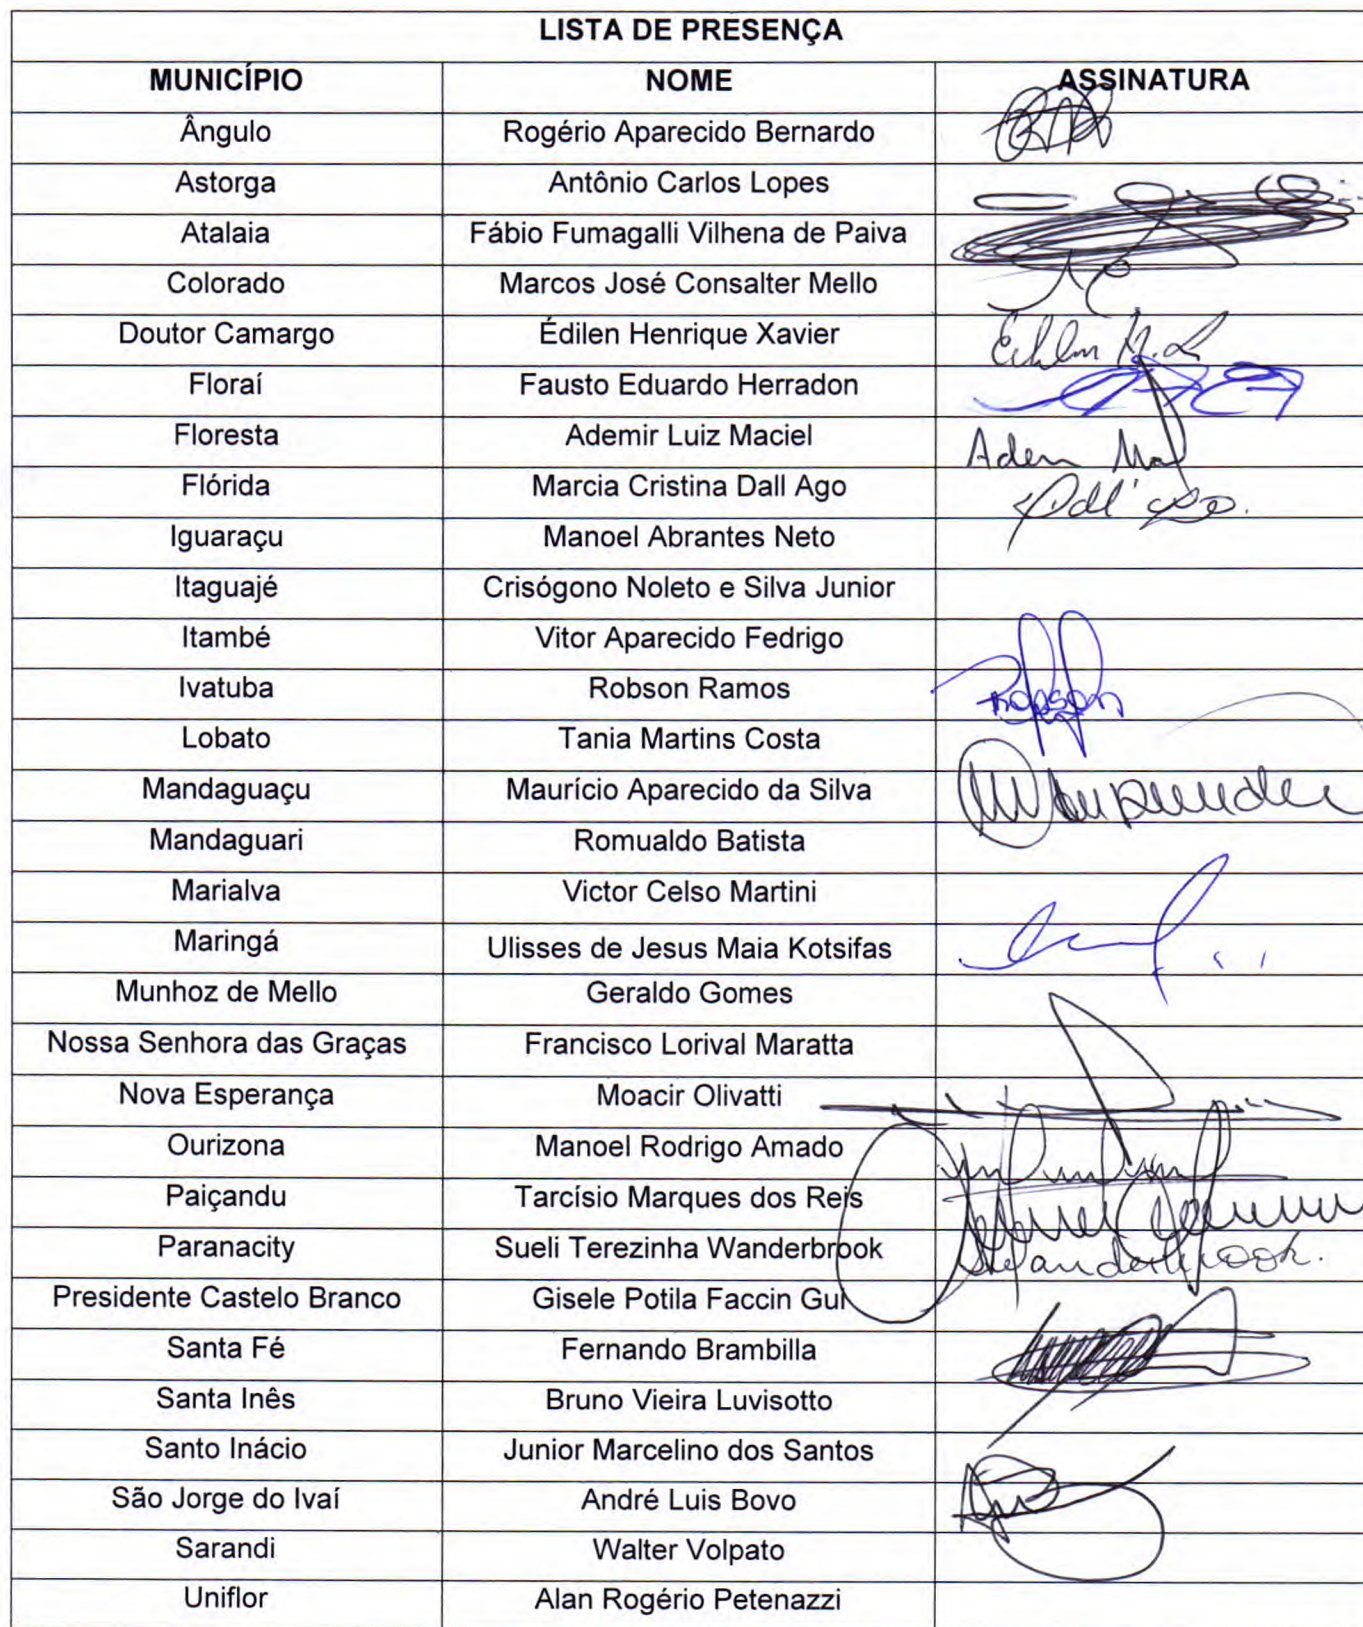 LISTA DE PRESENÇA
MUNICÍPIO NOME ASSINATURA
Ângulo Rogério Aparecido Bernardo
Astorga Antônio Carlos Lopes
Atalaia Fábio Fumagalli Vilhena de Paiva
Colorado Marcos José Consalter Mello
Doutor Camargo Édilen Henrique Xavier
Floraí Fausto Eduardo Herradon
Floresta Ademir Luiz Maciel
Flórida Marcia Cristina Dall Ago
Iguaraçu Manoel Abrantes Neto
Itaguajé Crisógono Noleto e Silva Junior
Itambé Vitor Aparecido Fedrigo
Ivatuba Robson Ramos Robson
Lobato Tania Martins Costa
Mandaguaçu Maurício Aparecido da Silva
Mandaguari Romualdo Batista
Marialva Victor Celso Martini
Maringá Ulisses de Jesus Maia Kotsifas
Munhoz de Mello Geraldo Gomes
Nossa Senhora das Graças Francisco Lorival Maratta
Nova Esperança Moacir Olivatti
Ourizona Manoel Rodrigo Amado
Paiçandu Tarcísio Marques dos Reis
Paranacity Sueli Terezinha Wanderbrook
Presidente Castelo Branco Gisele Potila Faccin Gui
Santa Fé Fernando Brambilla
Santa Inês Bruno Vieira Luvisotto
Santo Inácio Junior Marcelino dos Santos
São Jorge do Ivaí André Luis Bovo
Sarandi Walter Volpato
Uniflor Alan Rogério Petenazzi